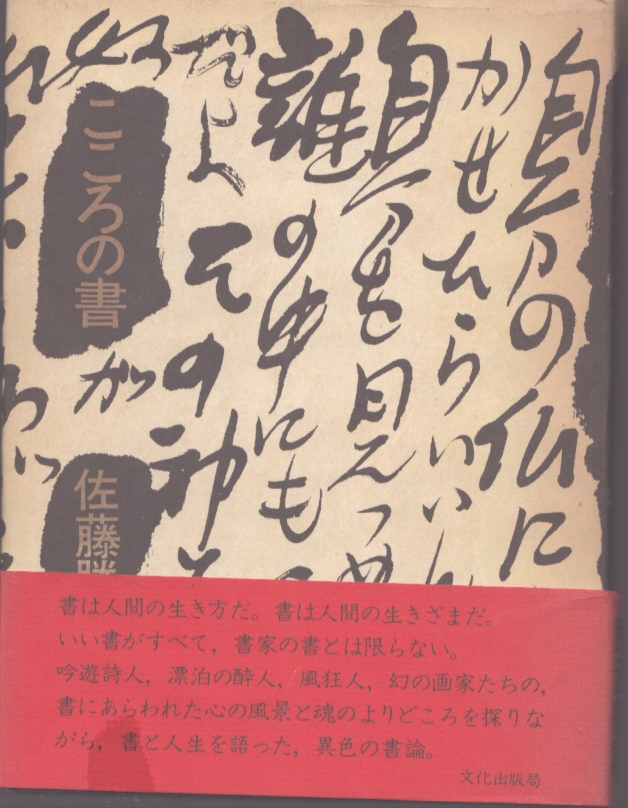 自分の仏に
かせたらいい
自分を見つめ
誰の中にも
その神
こころの書
佐藤
書は人間の生き方だ。書は人間の生きざまだ。
いい書がすべて，書家の書とは限らない。
吟遊詩人，漂泊の酔人，風狂人，幻の画家たちの，
書にあらわれた心の風景と魂のよりどころを探りな
がら，書と人生を語った，異色の書論。
文化出版局